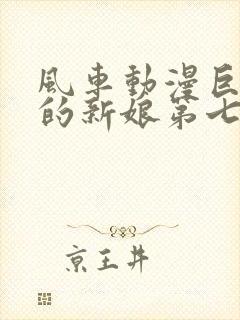 風車動漫巨
的新娘第七
京王井